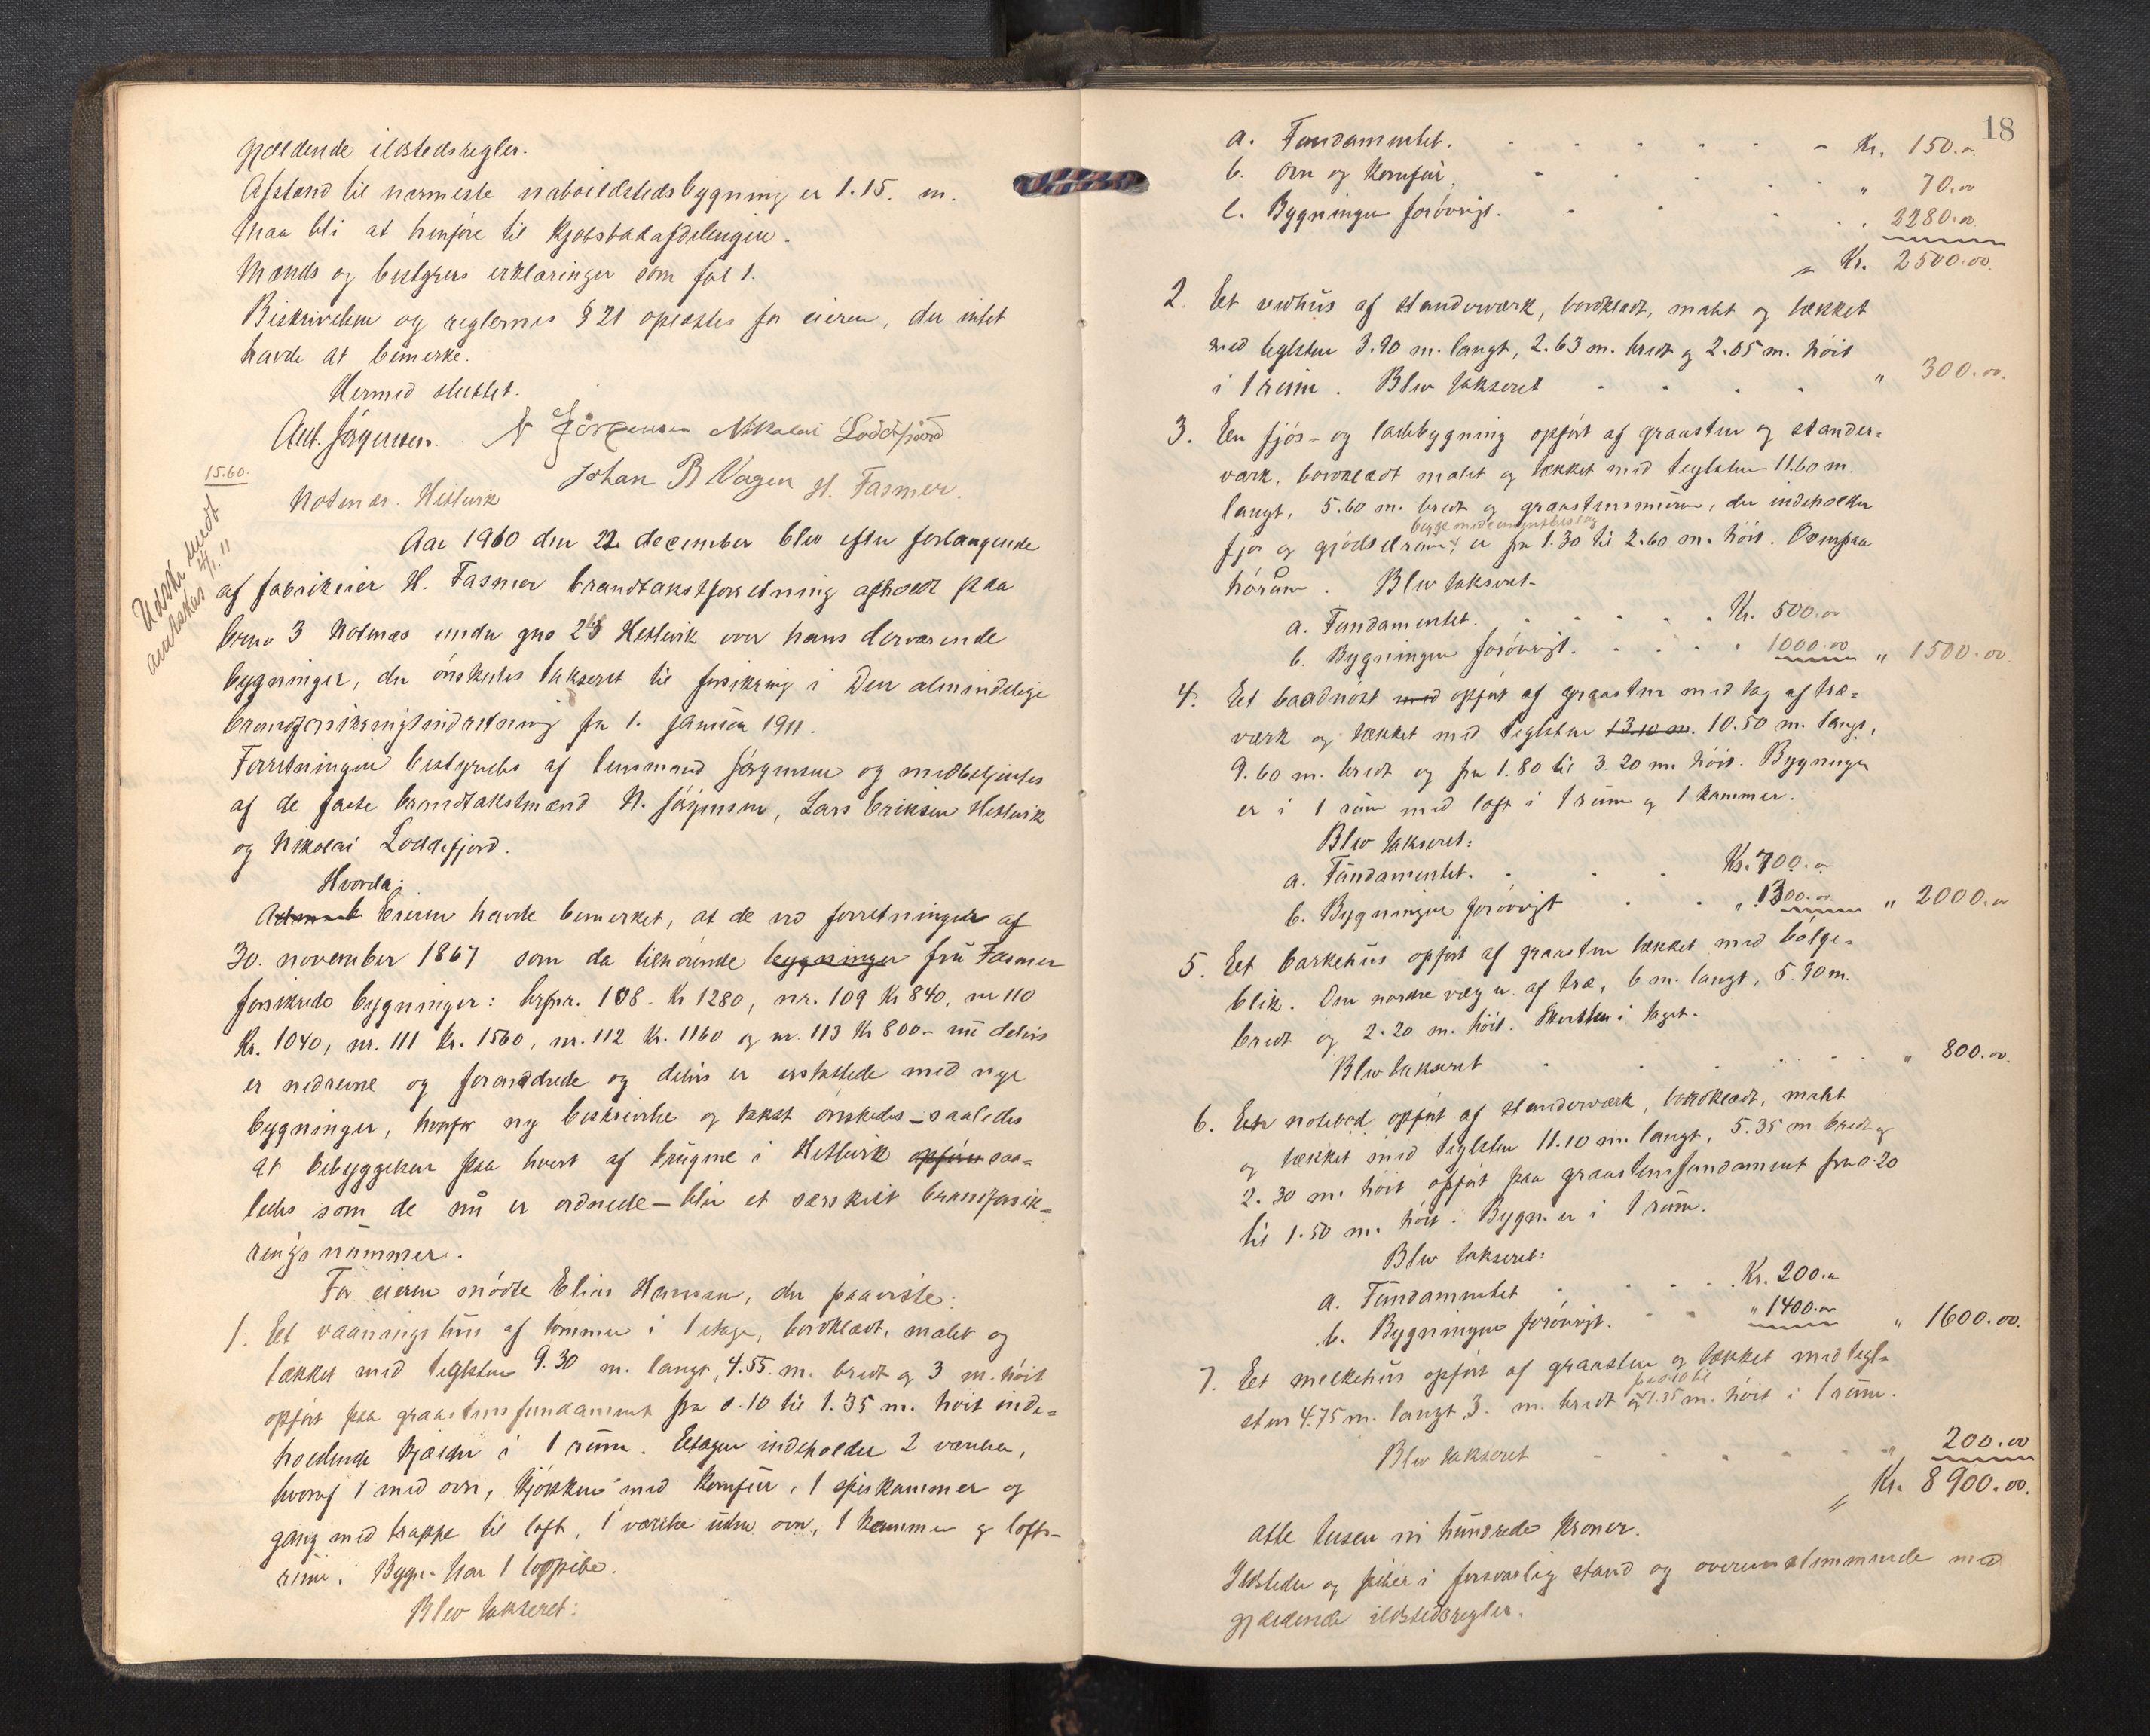 gjældende ildstedsregler.
Afstand til nærmeste naboildstedsbygning er 1.15. m.
Maa bli at henføre til Kjøbstadafdelingen.
Mænds og bestyrers erklæringer som fol 1.
Beskrivelsen og reglernes § 21 oplæstes for eieren, der intet
havde at bemerke.
Hermed sluttet.
And. Jørgensen. N Jörgensen Nikolai Loddefjord
Johan B Vagen H. Fasmer.
15.60.
Notnæs. Hetlevik
Udsk. sendt
amtskas 4/1. 11
Aar 1910 den 22 december blev efter forlangende
af fabrikeier H. Fasmer brandtakstforretning afholdt paa
brno 3 Notnæs under gno 23 Hetlevik over hans derværende
bygninger, der ønskedes takseret til forsikring i Den almindelige
brandforsikringsindretning fra 1. januar 1911.
Forretningen bestyredes af lensmand Jørgensen og medbetjentes
af de faste brandtakstmænd N. Jørgensen, Lars Eriksen Hetlevik
og Nikolai Loddefjord.
Hvorda:
Eieren havde bemerket, at de ved forretningen af
30. november 1867 som da tilhørende bygninger fru Fasmer
forsikrede bygninger: brfnr. 108 - Kr 1280, nr. 109 Kr 840, nr 110
Kr. 1040, nr. 111 Kr. 1560, nr. 112 Kr. 1160 og nr. 113 Kr 800 - nu delvis
er nedrevne og forandrede og delvis er erstattede med nye
bygninger, hvorfor ny beskrivelse og takst ønskedes - saaledes
at bebyggelsen paa hvert af brugene i Hetlevik opføres saa=
ledes som de nu er ordnede - blir et særskilt brandforsik=
ringsnummer.
For eieren mødte Elias Hansen, der paaviste:
1. Eet vaaningshus af tømmer i 1 etage, bordklædt, malet og
tækket med teglsten 9.30 m. langt, 4.55. m. bredt og 3 m. høit
opført paa graastensfundament fra 0.10 til 1.35 m. høit inde=
holdende kjælder i 1 rum. Etagen indeholder 2 værelser,
hvoraf 1 med ovn, kjøkken med komfur, 1 spiskammer og
gang med trappe til loft, 1 værelse uden ovn, 1 kammer og lofts=
rum. Bygn. har 1 teglpibe.
Blev takseret:
18
a. Fundamentet. Kr. 150.00
b. Ovn og komfur " 70.00
c. Bygningen forøvrigt. " 2280.00
Kr. 2500.00.
2. Eet vedhus af standerværk, bordklædt, malet og tækket
med teglsten 3.90 m. langt, 2.63 m. bredt og 2.05 m. høit
i 1 rum. Blev takseret " 300.00.
3. Een fjøs- og ladebygning opført af graasten og stander=
værk, bordklædt malet og tækket med teglsten 11.60 m.
langt, 5.60 m. bredt og graastensmuren, der indeholder
begge med cementbeslag
fjøs og gjødselrum, er fra 1.30 til 2.60 m. høit. Ovenpaa
hørum. Blev takseret
a. Fundamentet. Kr. 500.00
b. Bygningen forøvrigt. 1000.00 " 1500.00
4. Eet baadnøst med opført af graasten med tag af træ=
værk og tækket med teglsten 13.10 m. 10.50 m. langt,
9.60 m. bredt og fra 1.80 til 3.20 m. høit. Bygningen
er i 1 rum med loft i 1 rum og 1 kammer.
Blev takseret:
a. Fundamentet. Kr. 700.00
b. Bygningen forøvrigt " 1300.00 " 2000.00
5. Eet barkehus opført af graasten tækket med bølge=
blik. Den nordre væg er af træ, 6 m. langt, 5.90 m.
bredt og 2.20 m. høit. Skorsten i taget.
Blev takseret " 800.00.
6. Een notebod opført af standerværk, bordklædt, malet
og tækket med teglsten 11.10 m. langt, 5.35 m bredt og
2.30 m. høit opført paa graastensfundament fra 0.20
til 1.50 m. høit. Bygn. er i 1 rum.
Blev takseret:
a. Fundamentet Kr. 200.00
b. Bygningen forøvrigt. " 1400.00 " 1600.00.
7. Eet melkehus opført af graasten og tækket med tegl=
sten 4.75 m. langt, 3. m. bredt og 1.35 m. høit i 1 rum.
Blev takseret " 200.00
Kr. 8900.00.
Otte tusen ni hundrede kroner.
Ildsteder og piber i forsvarlig stand og overensstemmende med
gjældende ildstedsregler.